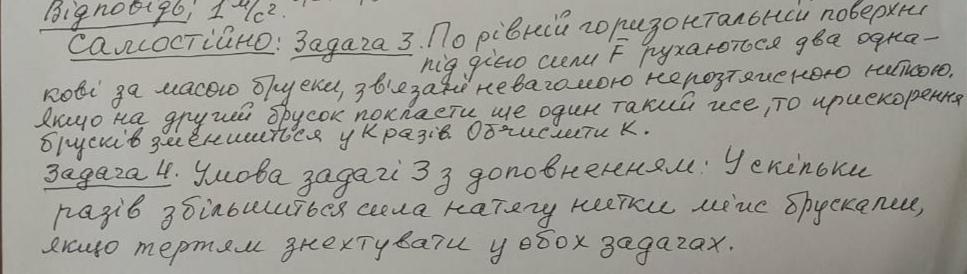 Відповідь: 1 м/с².
Самостійно: Задача 3. По рівній горизонтальній поверхні
під дією сили F̄ рухаються два одна-
кові за масою бруски, зв'язані невагомою нерозтяжною ниткою.
Якщо на другий брусок покласти ще один такий же, то прискорення
брусків зменшиться у К разів. Обчислити К.
Задача 4. Умова задачі 3 з доповненням: У скільки
разів збільшиться сила натягу нитки між брусками,
якщо тертям знехтувати у обох задачах.